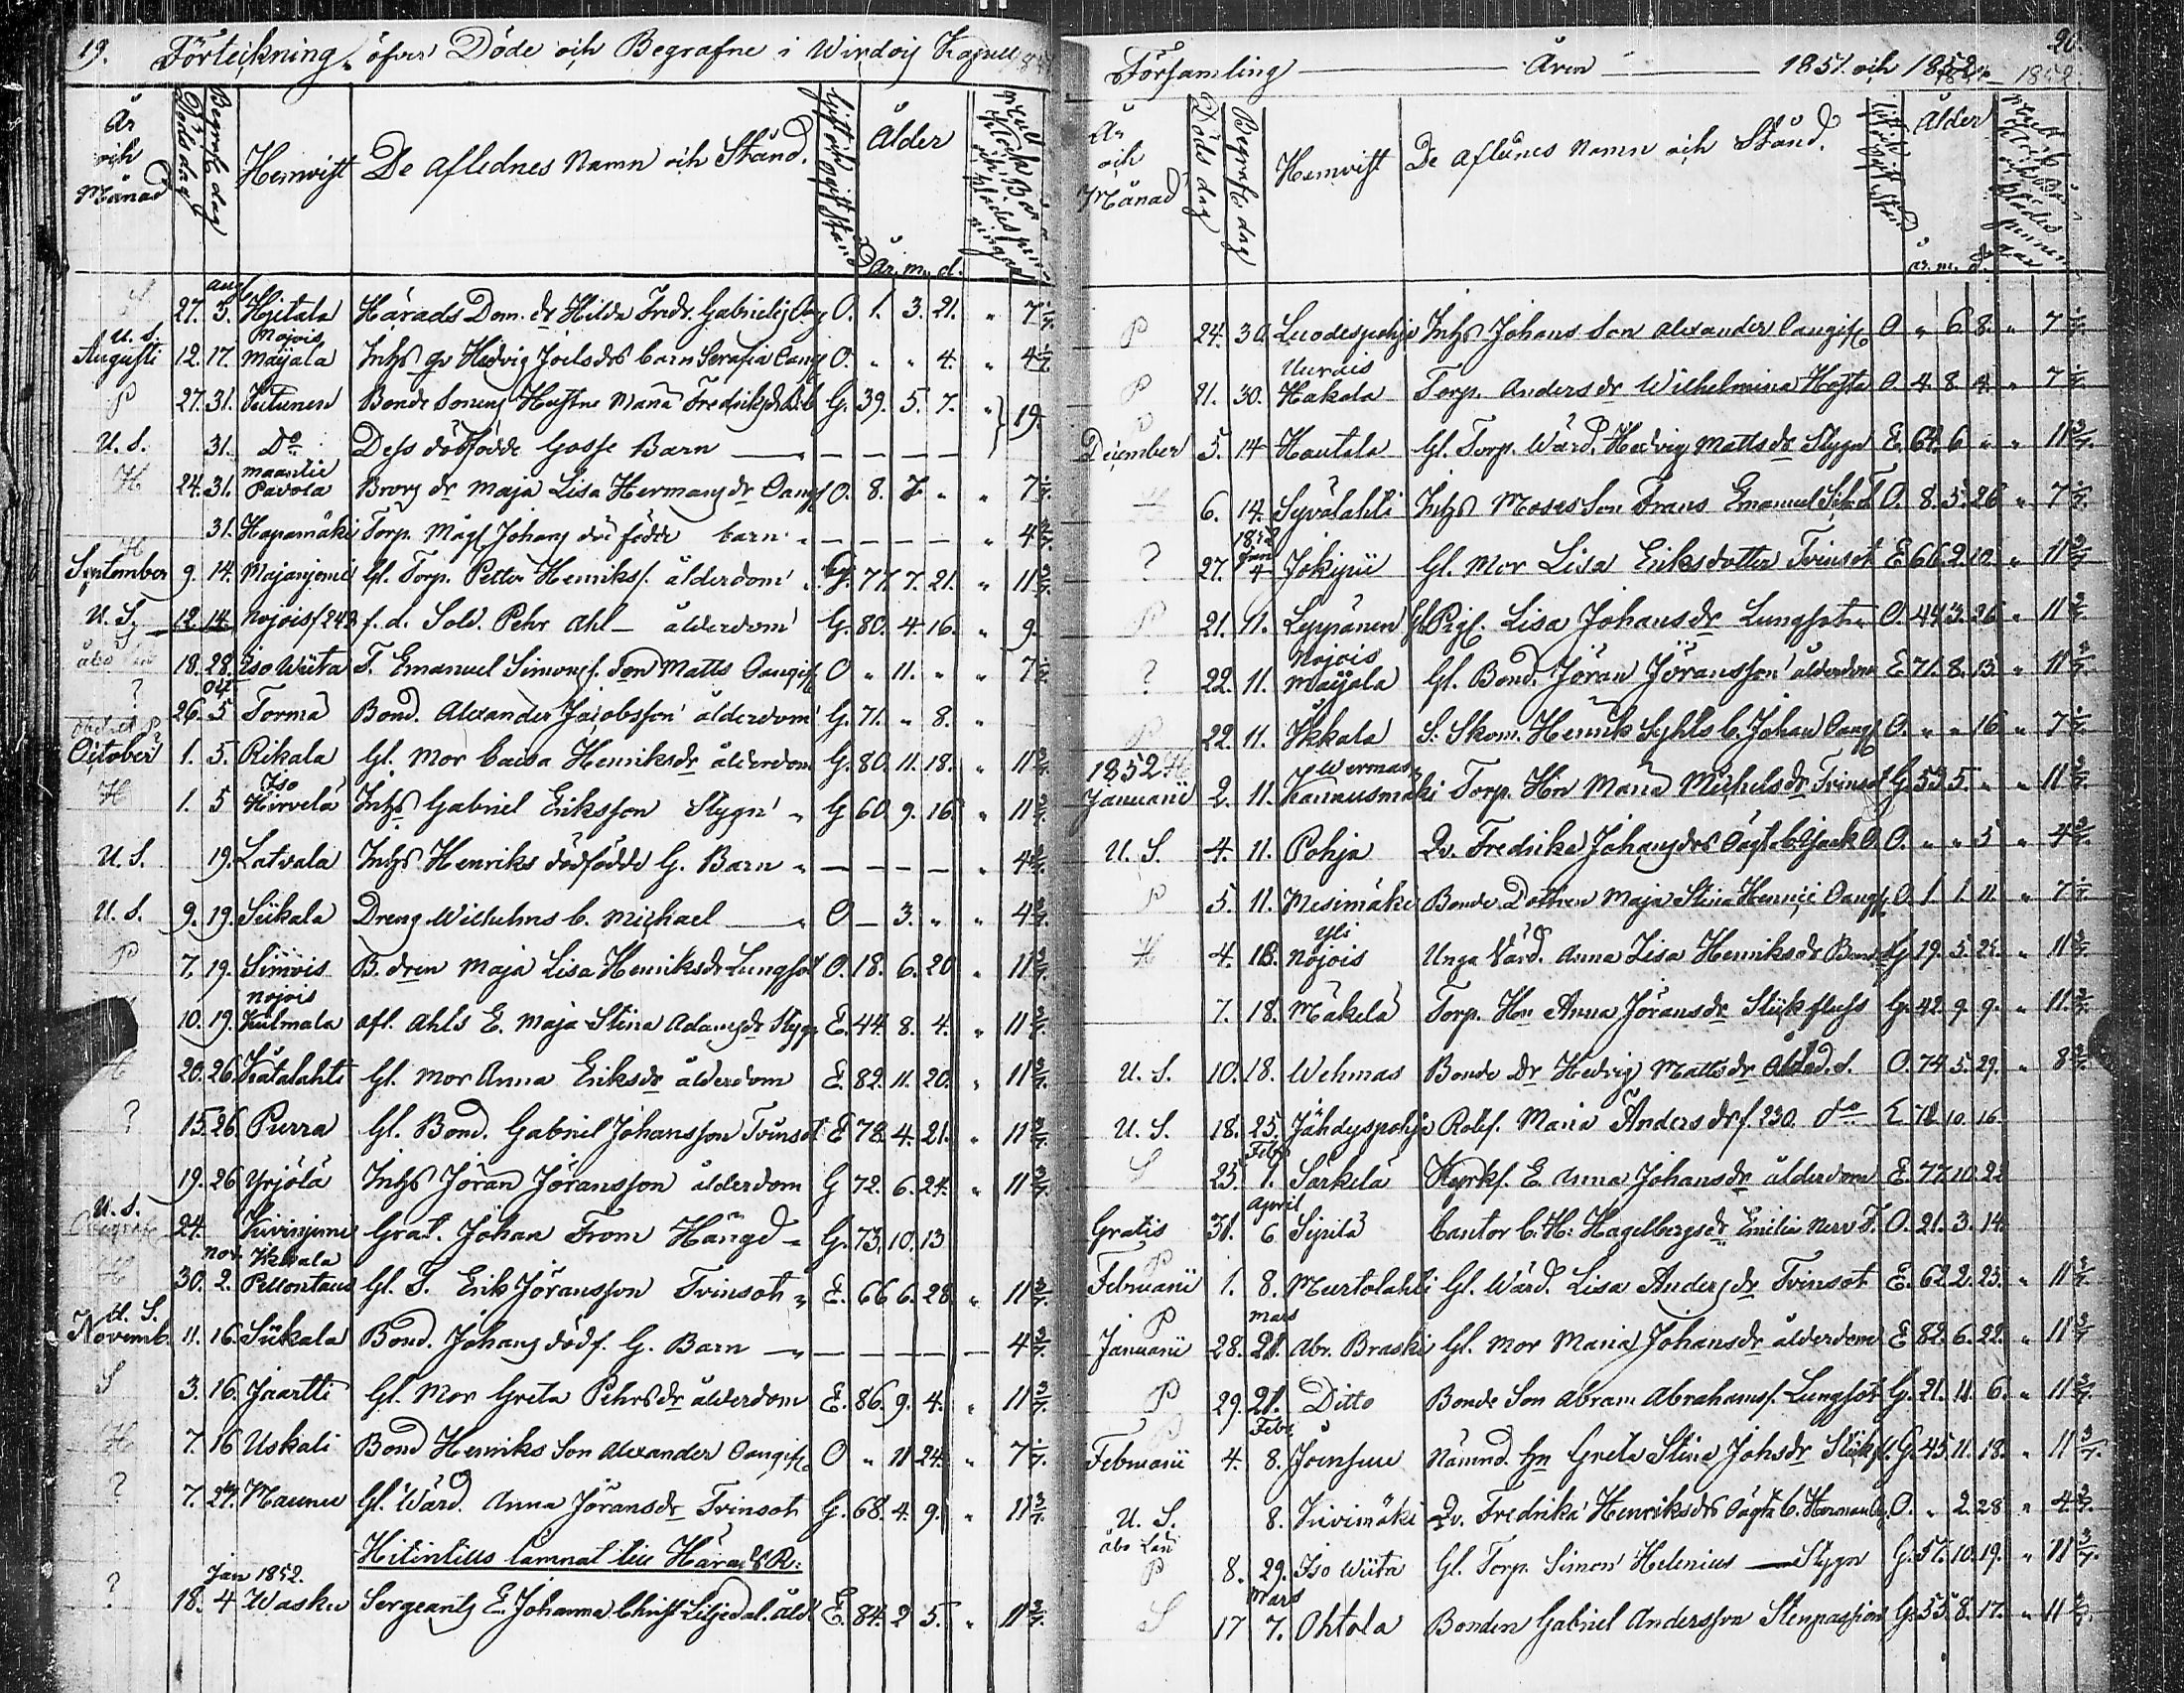 19. Förteckning öfver Döde och Begrafne i Wirdois Kapell
År och Månad | Döds dag | Begrafn. dag | Hemvist | De aflednes Namn och Stånd. | Gift och Ogift Stånd | Ålder År. m. d.
S 27. Aug 3. Hjitala Härads Dom. dr Hilda Fredr. O. 1. 3. 21. " 7 1/7.
U. S. Augusti 12. 17. Nojois Maijala Inhs qv Hedvig Joelsdrs barn Serafia O. " " 4. " 4 2/7
P 27. 31. Bonde Sonens Hustru Maria G. 39. 5. 7. " } 19.
U. S. 31. Do Dess dödfödde Gosse Barn — — — —
H 24. 31. Pavola dr Maja Lisa Hermans dr O. 8. 7. " " 7 1/7.
H 31. Hapamäki Torp. Måg Johans död födde barn " — — — — " 4 2/7.
September 9. 14. Majanjemi Gl. Torp. Petter Henrikss. ålderdom G. 77. 7. 21. " 11 3/7.
U. S. 12. 14. Nojois f. d. Sold. Pehr Ahl — ålderdom G. 80. 4. 16. " 9.
S Åbo Län 18. 28. Iso Wiita T. Emanuel Simons f. Son Matts O " 11. " " 7 1/7
? 26. Oct 5 Torma Bond. Alexander Jacobsson ålderdom G. 71. " 8. "
October 1. 5. Rikala Gl. Mor Caisa Henriksdr ålderdom G. 80. 11. 18. " 11 3/7.
H 1. 5 Iso Hirvelä Inhs Gabriel Eriksson Stygn " G 60. 9. 16. " 11 3/7.
U. S. 19. Latvala Inhs Henriks dödfödde G. Barn " — — — — " 4 2/7.
U. S. 9. 19. Siikala Dreng Wilhelms b. Michael — " O — 3. " " 4 2/7.
P 7. 19. Simois B. dren Maja Lisa Henriksdr Lungsot O. 18. 6. 20 " 11 3/7.
10. 19. Nojois Kulmala afl. Ahls E. Maja Stina Adamsdr Stygn E. 44. 8. 4. " 11 3/7.
H 20. 26. Kätalahti Gl. Mor Anna Eriksdr ålderdom E. 82. 11. 20. " 11 3/7.
? 15. 26 Purra Gl. Bond. Gabriel Johansson Tvinsot E 78. 4. 21. " 11 3/7.
19. 26 Yrjölä Inhs Jöran Jöransson ålderdom G 72. 6. 24. " 11 3/7.
U. S. 24. Kivinjemi Grat. Johan From Hängd " G. 73. 10. 13
H 30. Nov. 2. Gl. T. Erik Jöransson Tvinsot " E. 66 6. 28. " 11 3/7.
U. S. Novemb. 11. 16. Siikala Bond. Johans dödf. G. Barn — " — — — — — 4 2/7.
S 3. 16. Jaartti Gl. Mor Greta Pehrsdr ålderdom E. 86. 9. 4. " 11 3/7.
H 7. 16 Uskali Bond Henriks Son Alexander O " 11 24. " 7 1/7.
? 7. 27. Maunu Gl. Wärd. Anna Jöransdr Tvinsot G. 68. 4. 9. " 11 3/7.
Hitintills lämnat till Härads R:
? 18. Jan 1852. 4 Wasku Sergeants E. Johanna Christ Liljedal. åld. E. 84. 2 5. " 11 3/7.
20.
Församling — Åren — 1851 och 1852 1852.
År och Månad | Döds dag | Begrafn. dag | Hemvist | De aflidnes namn och Stånd. | Ålder år. m. d.
P 24. 30. Luodespohja Inhs Johans Son Alexander O " 6 8. " 7 1/7.
P 21. 30. Hakola Torp. Anders dr Wilhelmina Hosta O. 4. 8 4 " 7 1/7.
December 5. 14 Hautala Gl. Torp. Wärd. Hedvig Mattsdr Stygn E. 64. 6 " " 11 3/7.
H 6. 14. Syvälahti Inhs Moses Son Frans Emanuel O. 8. 5. 26 " 7 1/7.
? 27. 1852 Jan 4 Jokipii Gl. Mor Lisa Eriksdotter Tvinsot E 66. 2. 10. " 11 3/7.
P 21. 11. Leppänen Lisa Johansdr Lungsot " O. 44. 3. 26 " 11 3/7.
? 22. 11. Nojois Maijala Gl. Bond. Jöran Jöransson ålderdom E 71. 8. 13. " 11 3/7.
P 22. 11. Ikkala S. Skom. Henrik b. Johan O. " " 16 " 7 1/7.
1852 H Januarii 2. 11. Wermas Kannusmäki Torp. Hin Maria Michelsdr Tvinsot G. 53. 5. " " 11 3/7.
U. S. 4. 11. Pohja Qv. Fredrika Johansdrs O. " " 5 " 4 2/7
P 5. 11. Mesimäki Bonde Dottren Maja Stina Henrici O. 1. 1. 11. " 7 1/7.
H 4. 18. Yli Nojois Unga Värd. Anna Lisa Henriksdr G. 19. 5. 25. " 11 3/7.
7. 18. Mäkelä Torp. Hn Anna Jöransdr G. 42. 9. 9. " 11. 3/7.
U. S. 10. 18. Wehmas Bonde Dr Hedvig Mattsdr O. 74. 5. 29. " 8 2/7.
U. S. 18. 25. Jähdyspohja Rotef. Maria Andersdr f. 230. do E. 72 10. 16.
S 25. Feb. 1. Särkelä E. Anna Johansdr ålderdom E. 77. 10. 22
Gratis 31. April 6 Sipilä Cantor C. H: Hagelbergs dr Emilia Nerv F. O. 21. 3. 14.
P Februarii 1. 8. Murtolahti Gl. Wärd. Lisa Anders dr Tvinsot E. 62. 2. 23. " 11 3/7.
P Januarii 28. Mars 21. Abr. Braski Gl. Mor Maria Johansdr ålderdom E 82. 6. 22. " 11 3/7.
P 29. 21. Ditto Bonde Son Abram Abrahamss. Lungsot G. 21. 11. 6. " 11 3/7.
P Februarii 4. Febr. 8. Joensuu Nämnd. Hn Greta Stina Johsdr G. 45. 11. 18. " 11 3/7.
U. S. 8. Kivimäki Qv. Fredrika Henriksdrs O. " 2. 28 " 4 2/7.
Åbo Län P 8. 29. Iso Wiita Gl. Torp. Simon Helenius — Stygn G. 57. 10. 19. " 11 3/7.
S 17 Mars 7. Ohtola Bonden Gabriel Andersson Stenpassion G. 55. 8. 17. " 11 3/7.